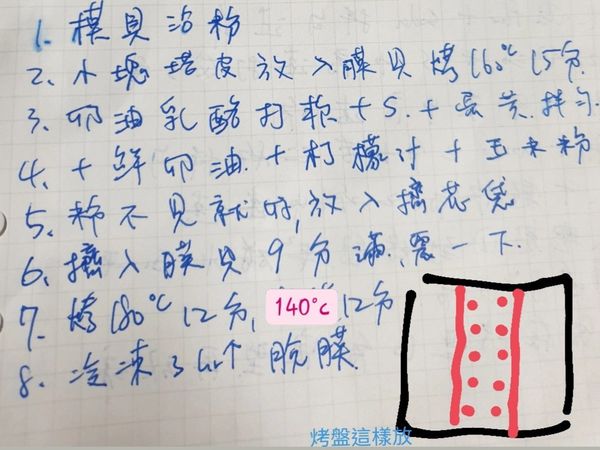 1. 模具沾粉
2. 小塊塔皮放入膜具烤160℃ 15分.
3. 奶油乳酪打軟+S.+蛋黃拌勻.
4. +鮮奶油.+柠檬汁+玉米粉
5. 粉不見就好,放入擠花袋
6. 擠入膜具9分滿,震一下.
7. 烤180℃ 12分, 140℃ 12分
8. 冷凍3hr↑ 脫膜
烤盤這樣放